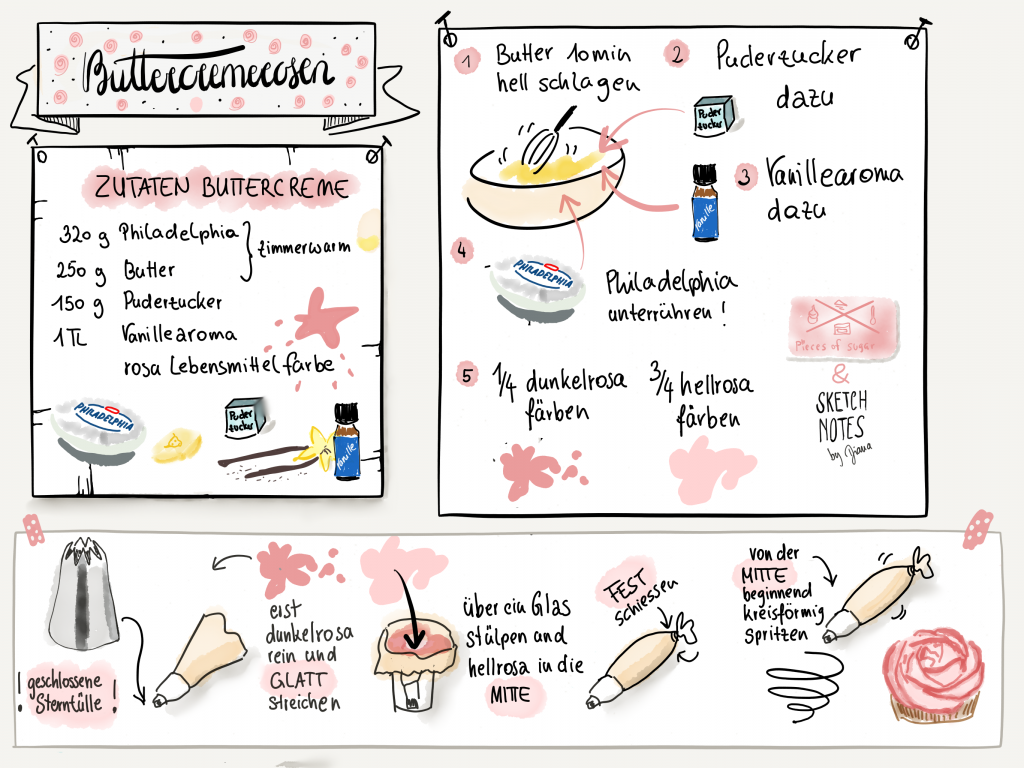 Buttercremerosen
ZUTATEN BUTTERCREME
320 g Philadelphia
250 g Butter
zimmerwarm
150 g Puderzucker
1 TL Vanillearoma
rosa Lebensmittelfarbe
PHILADELPHIA
Puder
zucker
Vanille
1 Butter 10min
hell schlagen
2 Puderzucker
dazu
Puder
zucker
3 Vanillearoma
dazu
Vanille
4
PHILADELPHIA
Philadelphia
unterrühren!
5 1/4 dunkelrosa
färben
3/4 hellrosa
färben
Pieces of sugar
&
SKETCH
NOTES
by Diana
! geschlossene !
Sterntülle
erst
dunkelrosa
rein und
GLATT
streichen
über ein Glas
stülpen and
hellrosa in die
MITTE
FEST
schiessen
von der
MITTE
beginnend
kreisförmig
spritzen